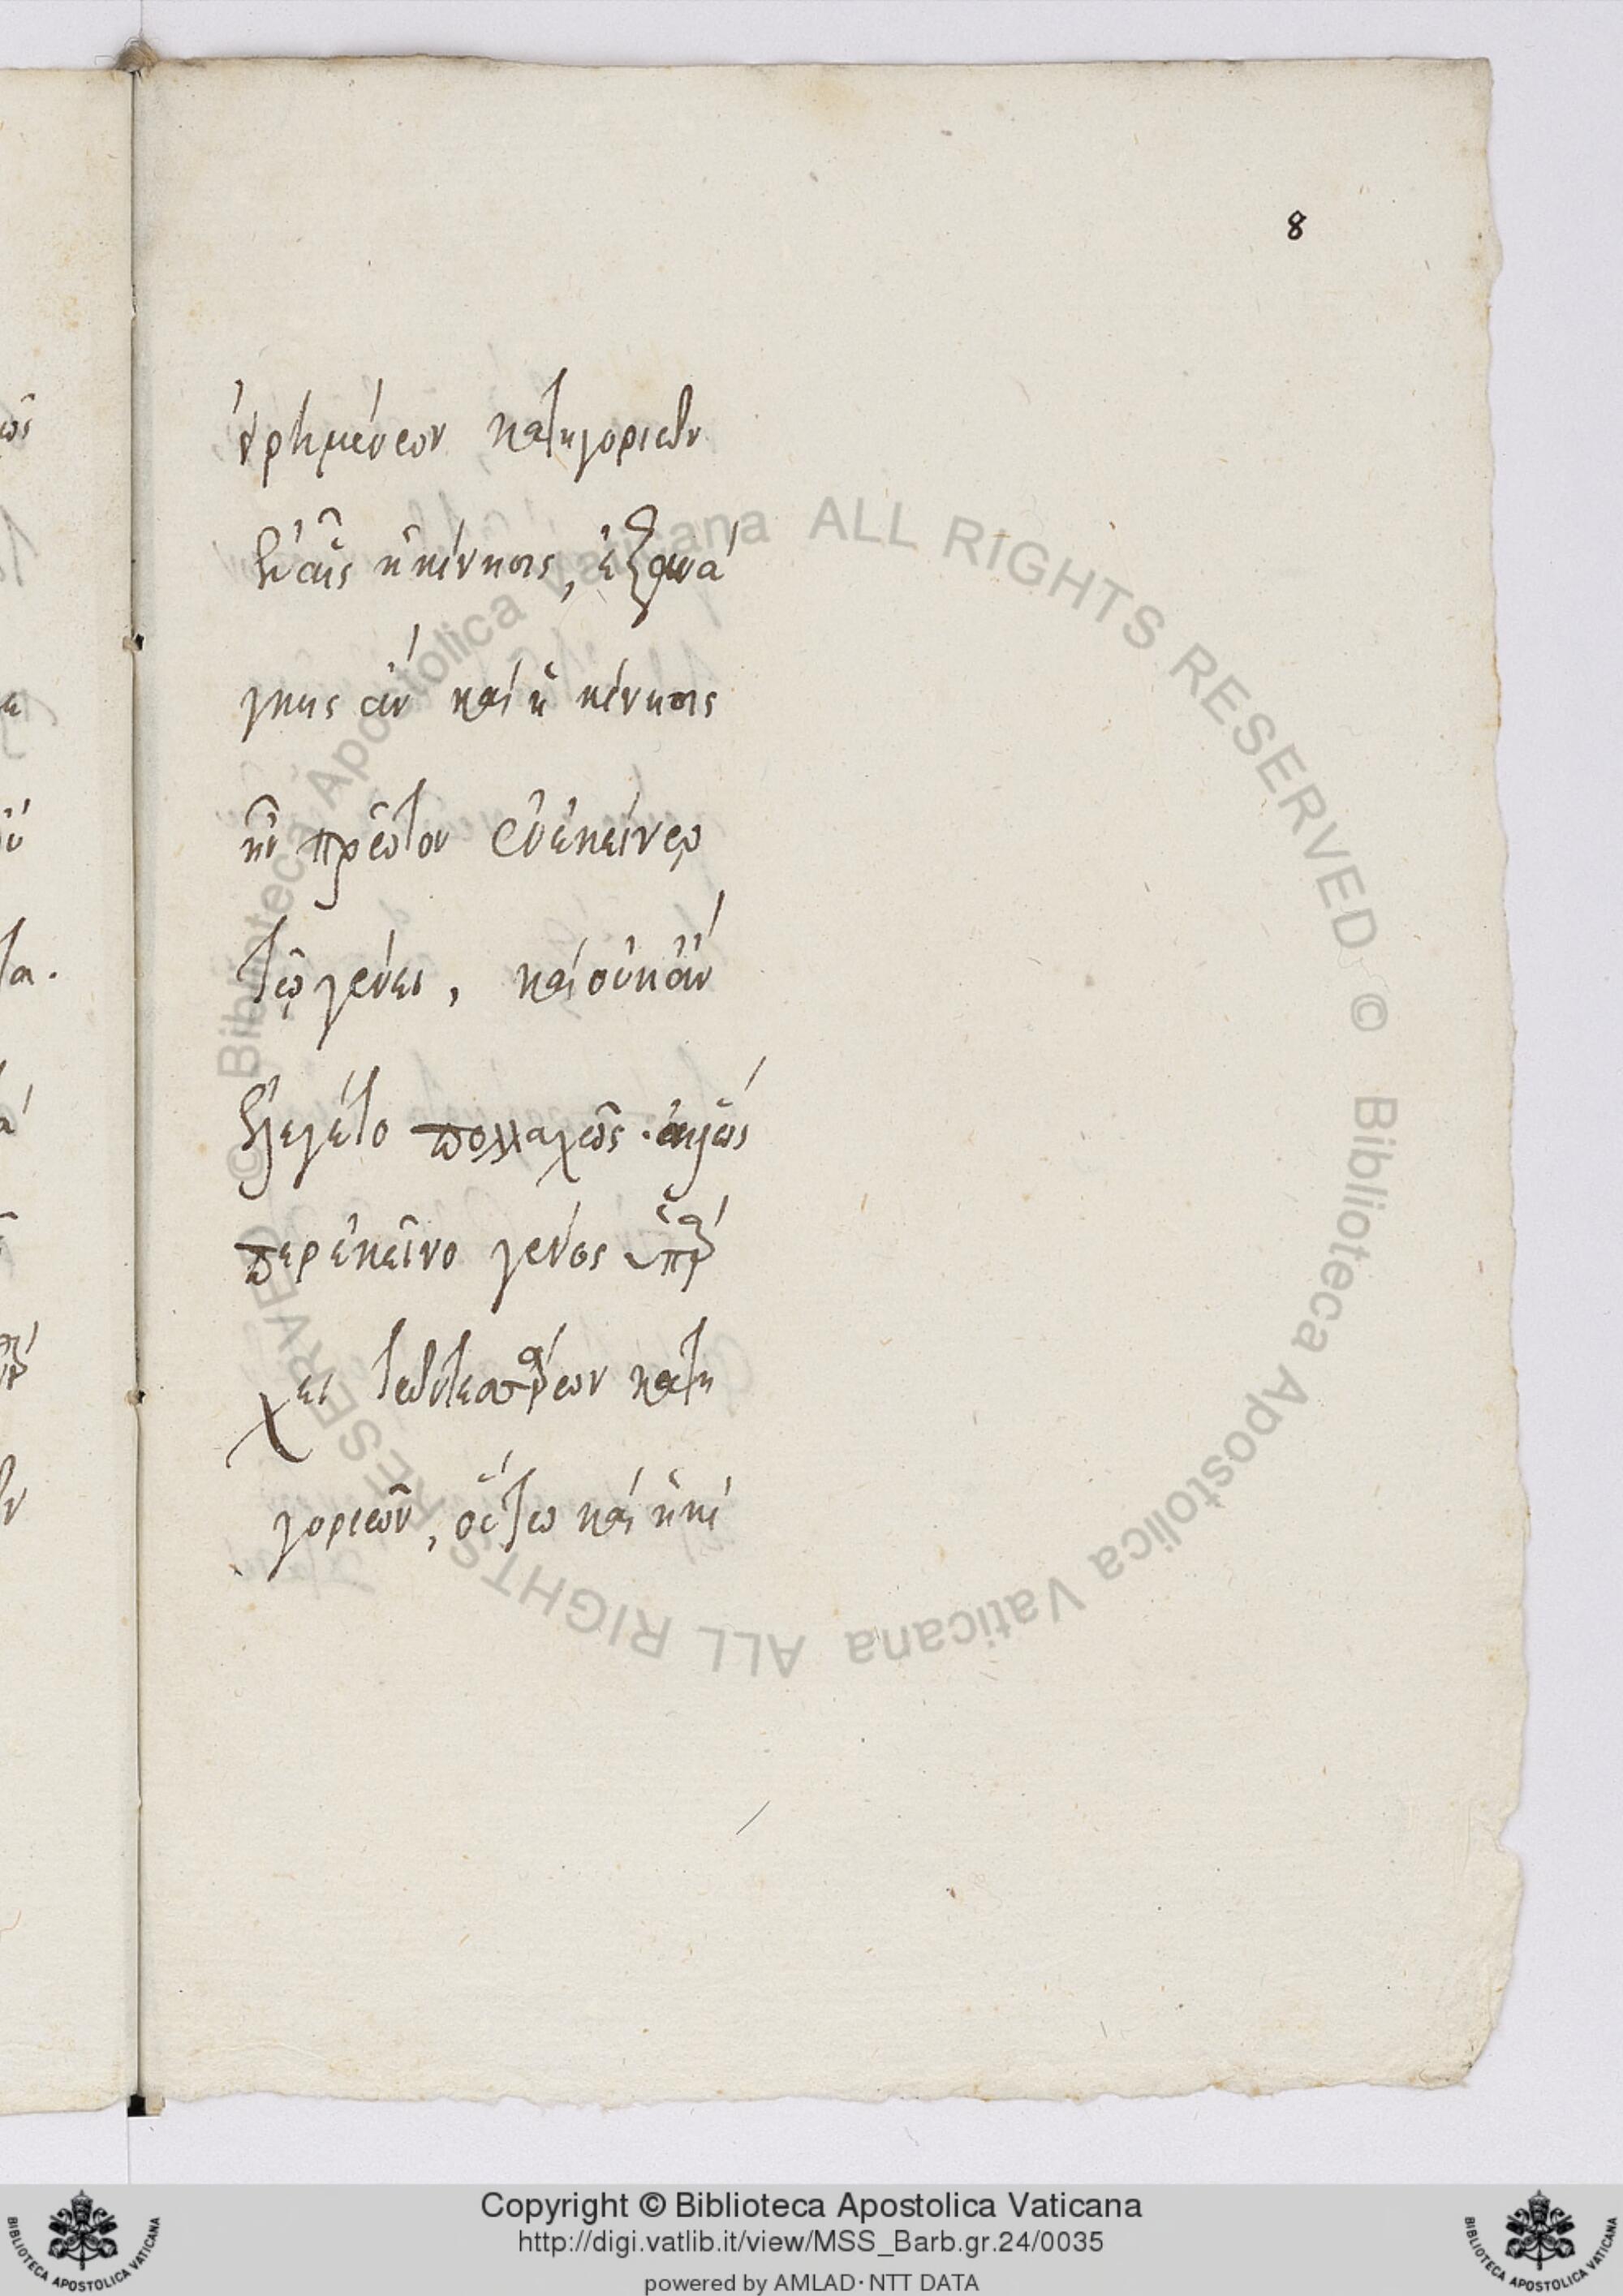 8
εἰρημένων κατηγοριῶν
ἐν αἷς ἡ κίνησις, ἐξ ἀνά
γκης ἂν καὶ ἡ κίνησις
ἦν πρῶτον ἐν ἐκείνῳ
τῷ γένει, καὶ οὐκ ἂν
ἐλέγετο πολλαχῶς. ἀλλ' ὥς
περ ἐκεῖνο γένος ὑπάρ
χει τῶν τεσσάρων κατη
γοριῶν, οὕτω καὶ ἡ κί
© Biblioteca Apostolica Vaticana ALL RIGHTS RESERVED
© Biblioteca Apostolica Vaticana ALL RIGHTS RESERVED
Copyright © Biblioteca Apostolica Vaticana
http://digi.vatlib.it/view/MSS_Barb.gr.24/0035
powered by AMLAD·NTT DATA
BIBLIOTECA APOSTOLICA VATICANA
BIBLIOTECA APOSTOLICA VATICANA